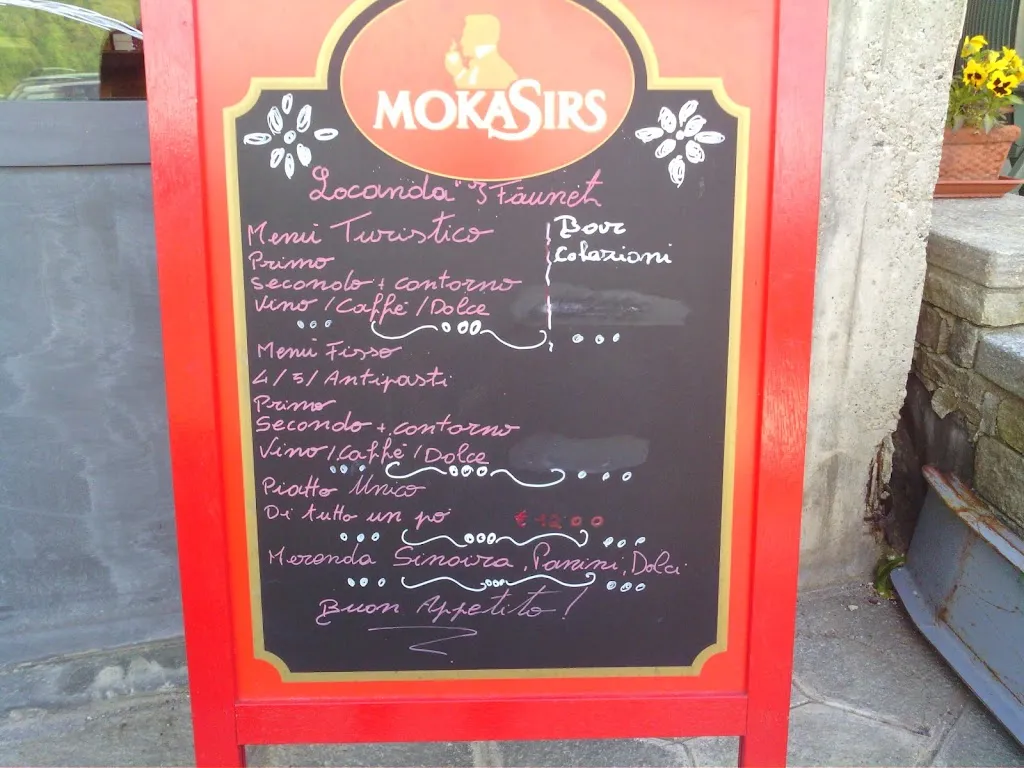 MOKASIRS
Locanda 3 Faunet
Menu Turistico
Primo
Secondo + contorno
Vino / Caffè / Dolce
Bar
Colazioni
Menu Fisso
4/5/Antipasti
Primo
Secondo + contorno
Vino / Caffè / Dolce
Piatto Unico
Di tutto un pò € 12 00
Merenda Sinoira, Panini, Dolci
Buon Appetito!